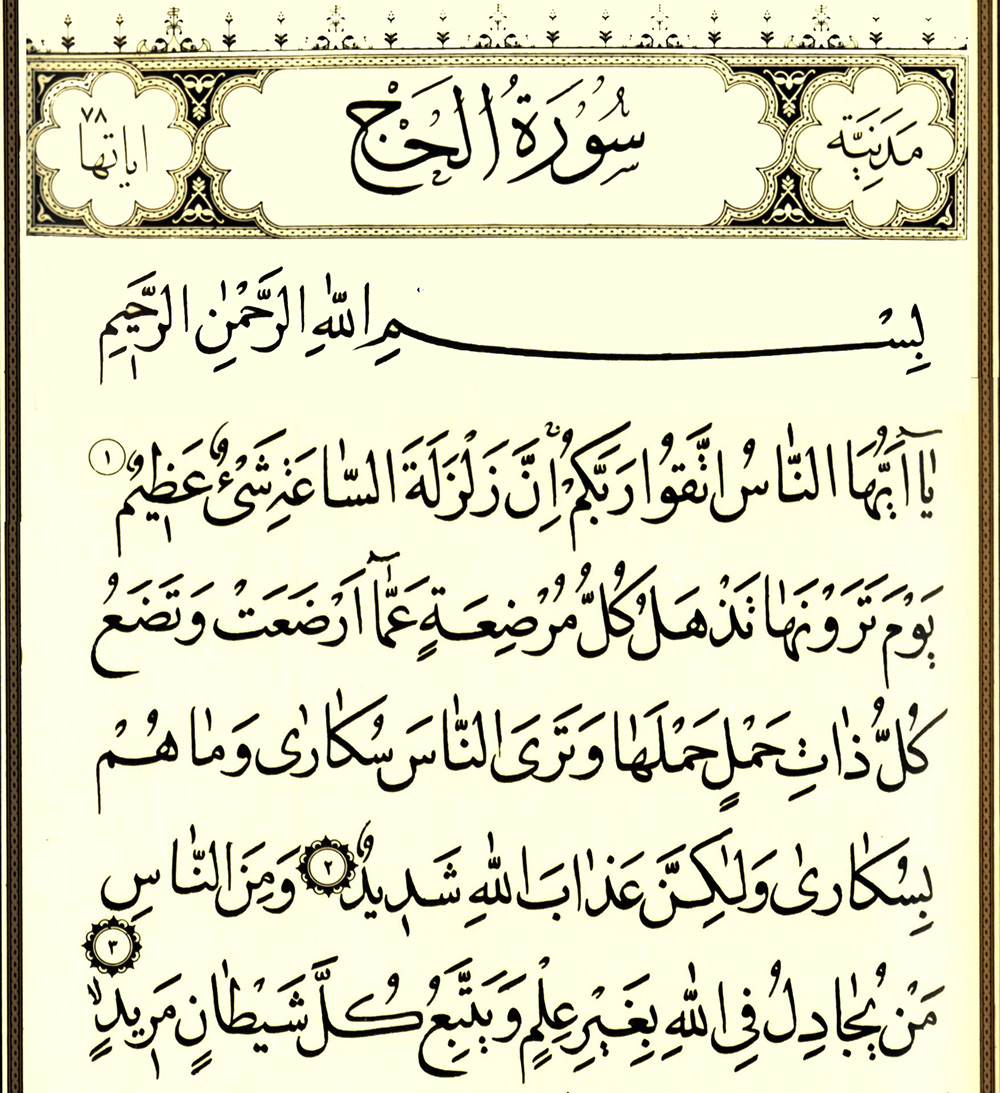 مَدَنِيَّة
سُورَةُ الحَجّ
٧٨
اياتها
بِسْمِ اللّٰهِ الرَّحْمٰنِ الرَّحِيمِ
يَٰٓا اَيُّهَا النَّاسُ اتَّقُوا رَبَّكُمْۚ اِنَّ زَلْزَلَةَ السَّاعَةِ شَىْءٌ عَظِيمٌ ١
يَوْمَ تَرَوْنَهَا تَذْهَلُ كُلُّ مُرْضِعَةٍ عَمَّٓا اَرْضَعَتْ وَتَضَعُ
كُلُّ ذَاتِ حَمْلٍ حَمْلَهَا وَتَرَى النَّاسَ سُكَارٰى وَمَا هُمْ
بِسُكَارٰى وَلٰكِنَّ عَذَابَ اللّٰهِ شَدِيدٌ ٢ وَمِنَ النَّاسِ
مَنْ يُجَادِلُ فِى اللّٰهِ بِغَيْرِ عِلْمٍ وَيَتَّبِعُ كُلَّ شَيْطَانٍ مَرِيدٍۙ ٣